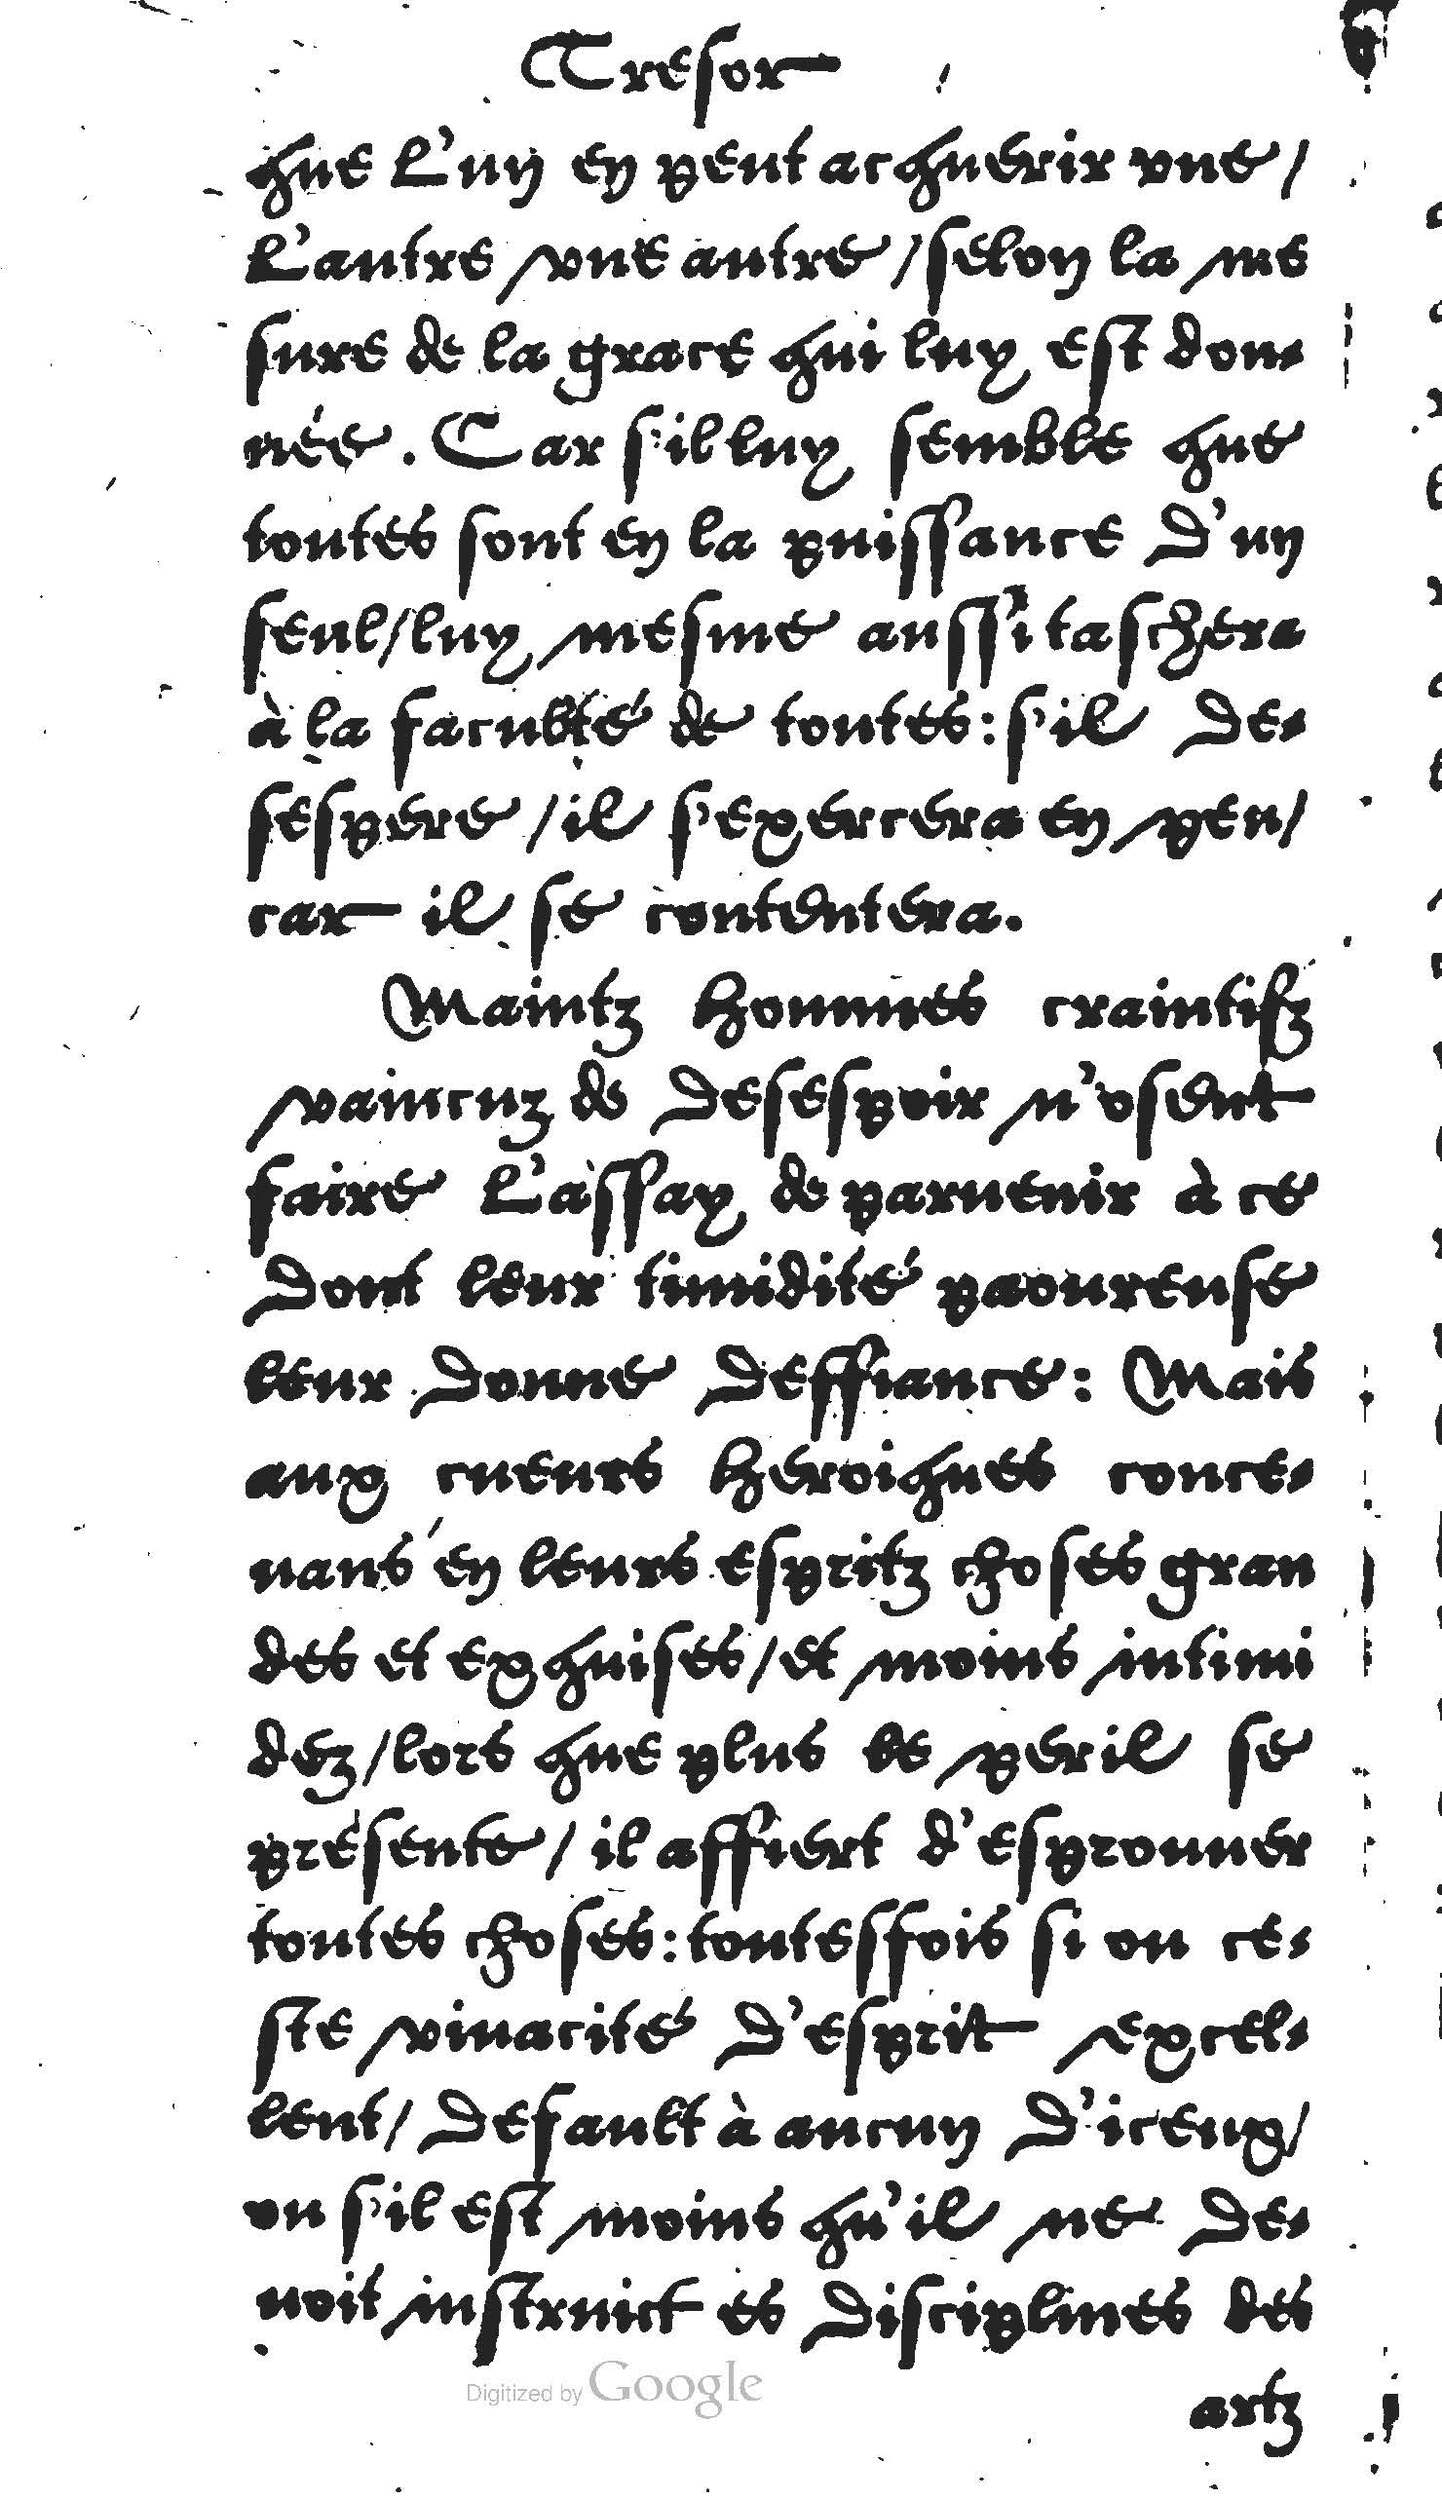 Tresor
que L'un en peut acquerir vne/
L'autre vne autre/selon la me
sure de la grace qui luy est don-
née. Car s'il luy semble que
toutes sont en la puissance d'un
seul/luy mesme aussi taschera
à la faculté de toutes: s'il de-
sespere/il s'exercera en peu/
car il se contentera.
Maintz hommes craintifz
vaincuz de desespoir n'osent
faire L'assay de paruenir à ce
dont leur timidité paoureuse
leur donne deffiance: Mais
aux cueurs heroiques conce-
uans en leurs espritz choses gran
des et exquises/et moins intimi
dez/lors que plus le peril se
presente/il affiert d'esprouuer
toutes choses: toutesfois si ou ce-
ste viuacité d'esprit excel-
lent/default à aucun d'iceux/
ou s'il est moins qu'il ne de-
uoit instruict es disciplines des
Digitized by Google
artz